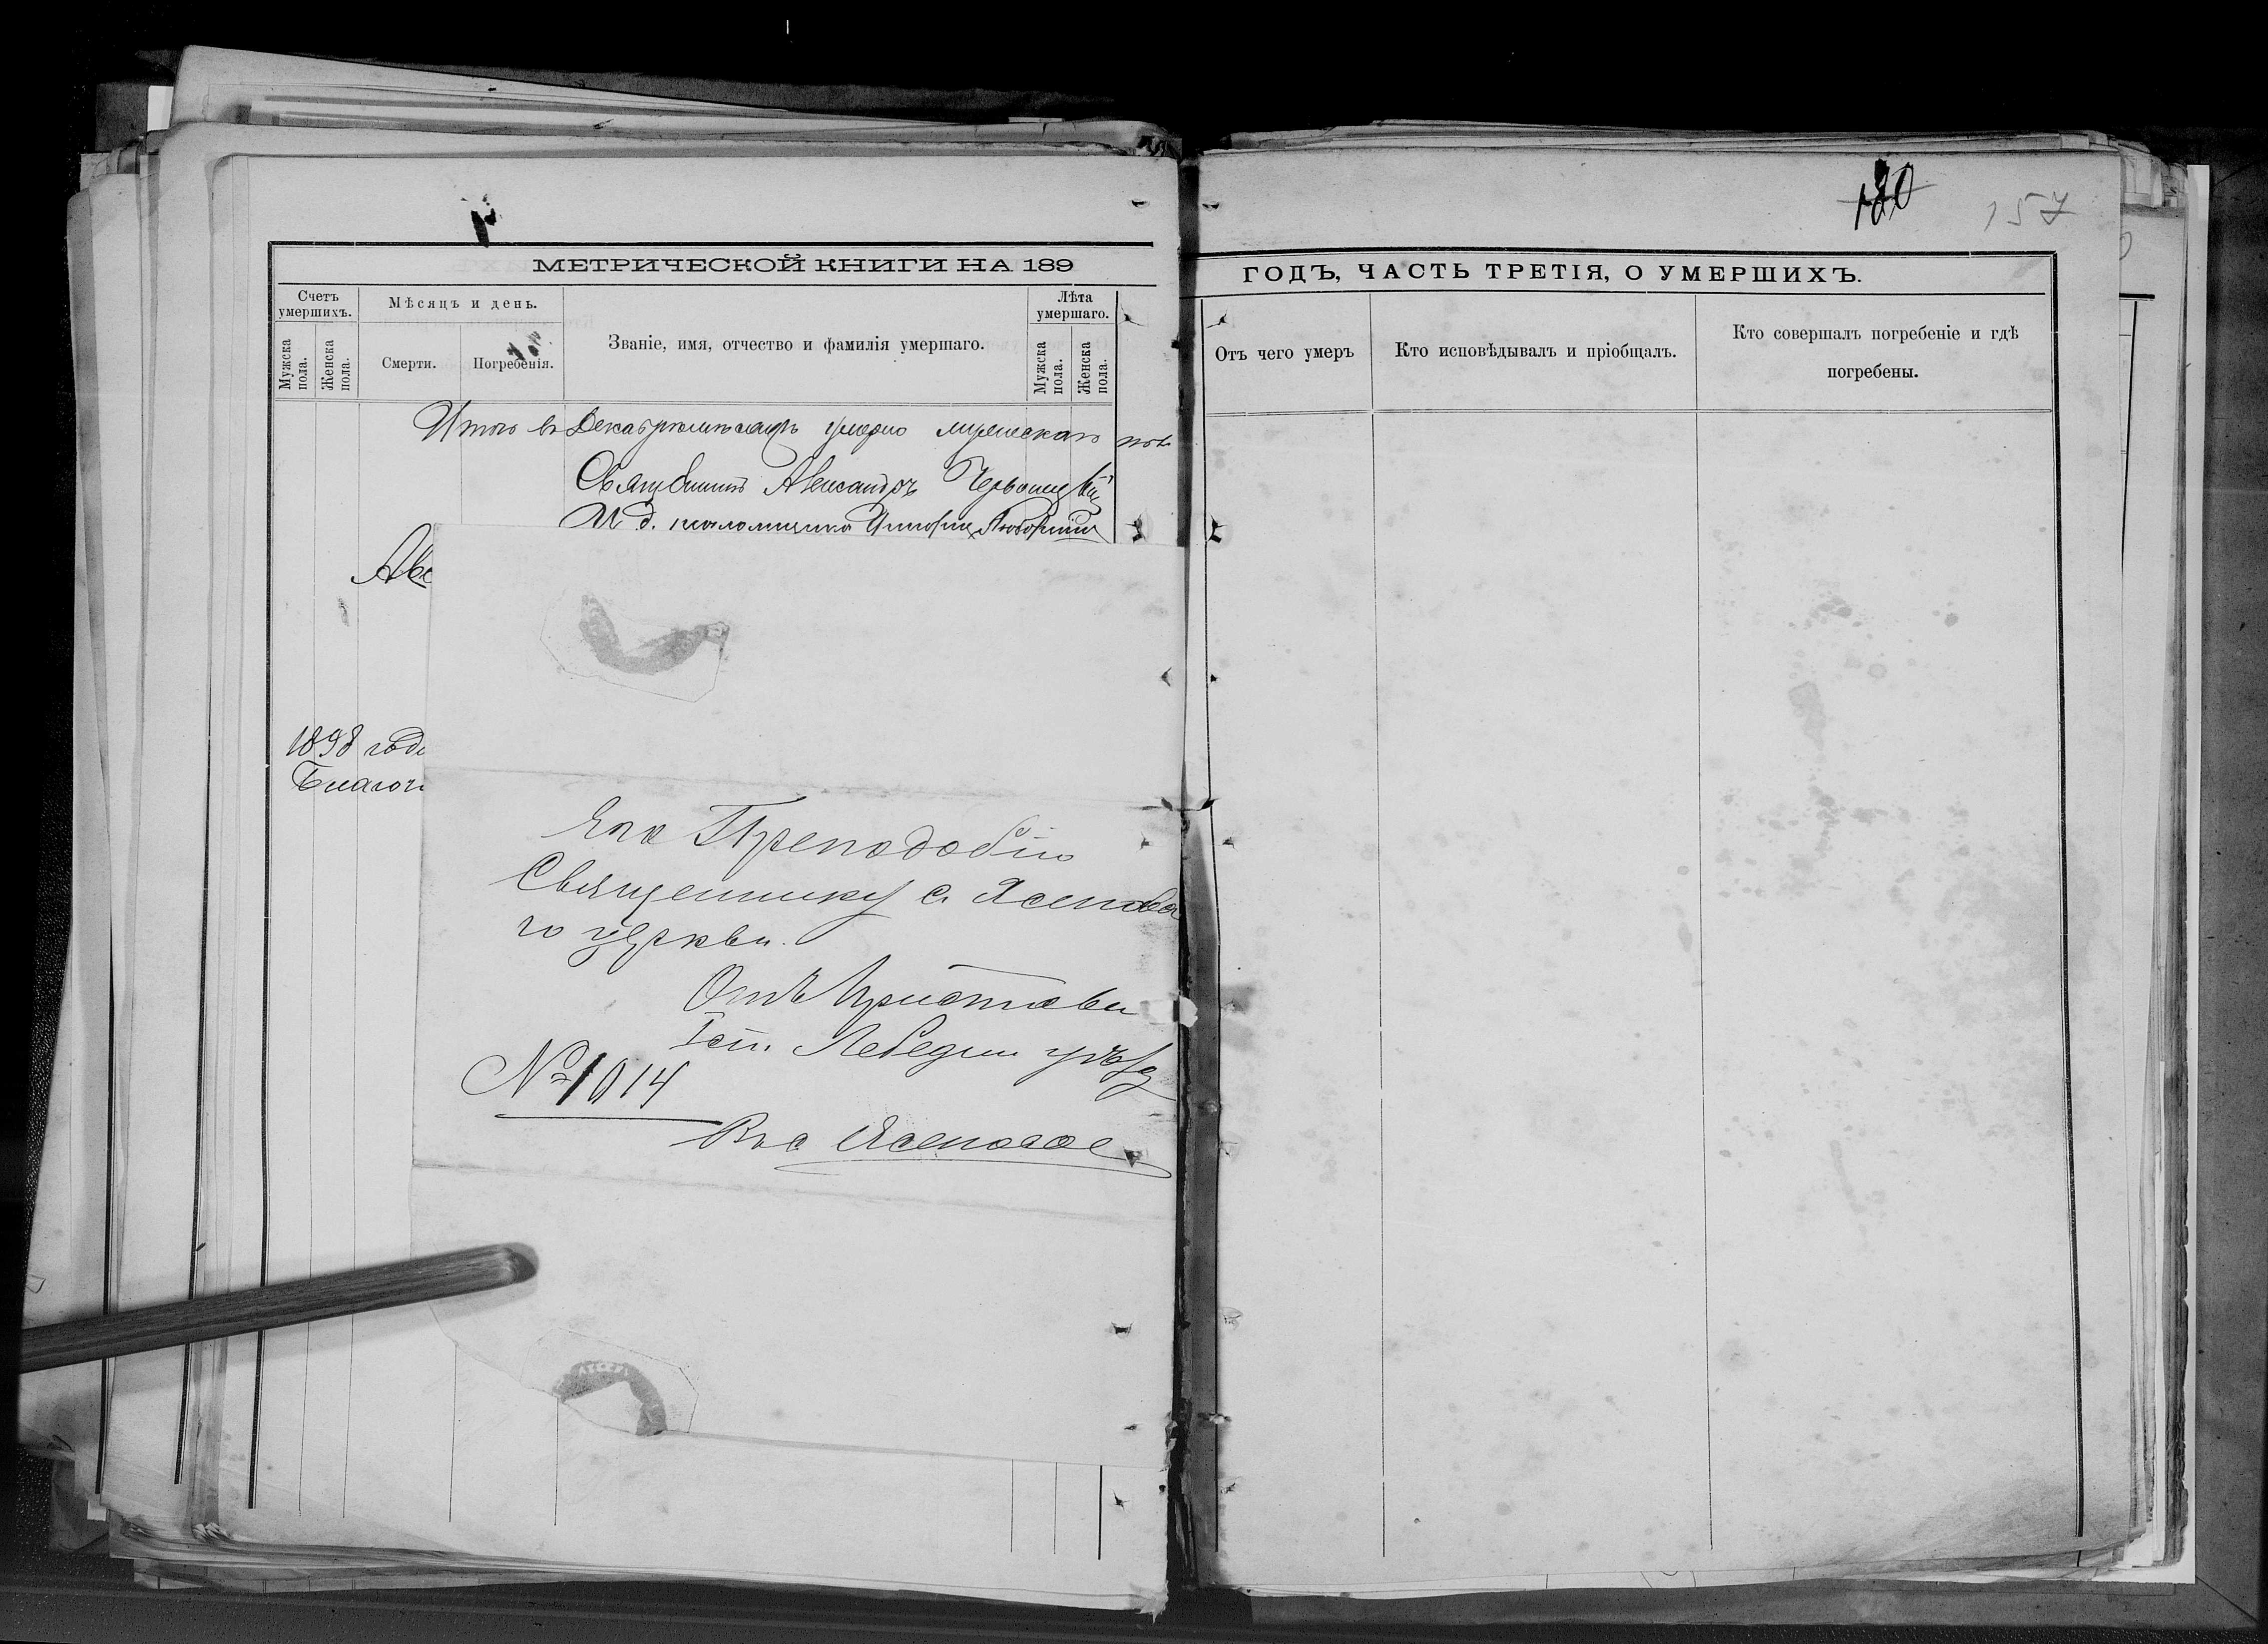 МЕТРИЧЕСКОЙ КНИГИ НА 189
Счетъ умершихъ.
Мужска пола.
Женска пола.
Мѣсяцъ и день.
Смерти.
Погребенія.
Званіе, имя, отчество и фамилія умершаго.
Лѣта умершаго.
Мужска пола.
Женска пола.
Итого въ Декабрѣ мѣсяцѣ умерло мужескаго пол
Священникъ Александръ
И д. псаломщика
1898 года
Благоч
Его Преподобію
Священнику с. Ясенова
го церкви.
Отъ Пристава
1 ст. Лебедин уѣзд
№ 1014
Въ с Ясеновое
180 157
ГОДЪ, ЧАСТЬ ТРЕТІЯ, О УМЕРШИХЪ.
Отъ чего умеръ
Кто исповѣдывалъ и пріобщалъ.
Кто совершалъ погребеніе и гдѣ
погребены.